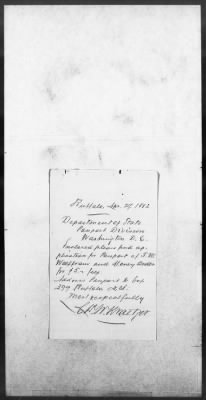 Buffalo Apr. 29, 1882
Department of State
Passport Division
Washington D. C.
Inclosed please find ap-
plication for Passport of
and Money Order
for $5.00 fees
Address Passport to Box
299 Buffalo N.Y.
Most respectfully